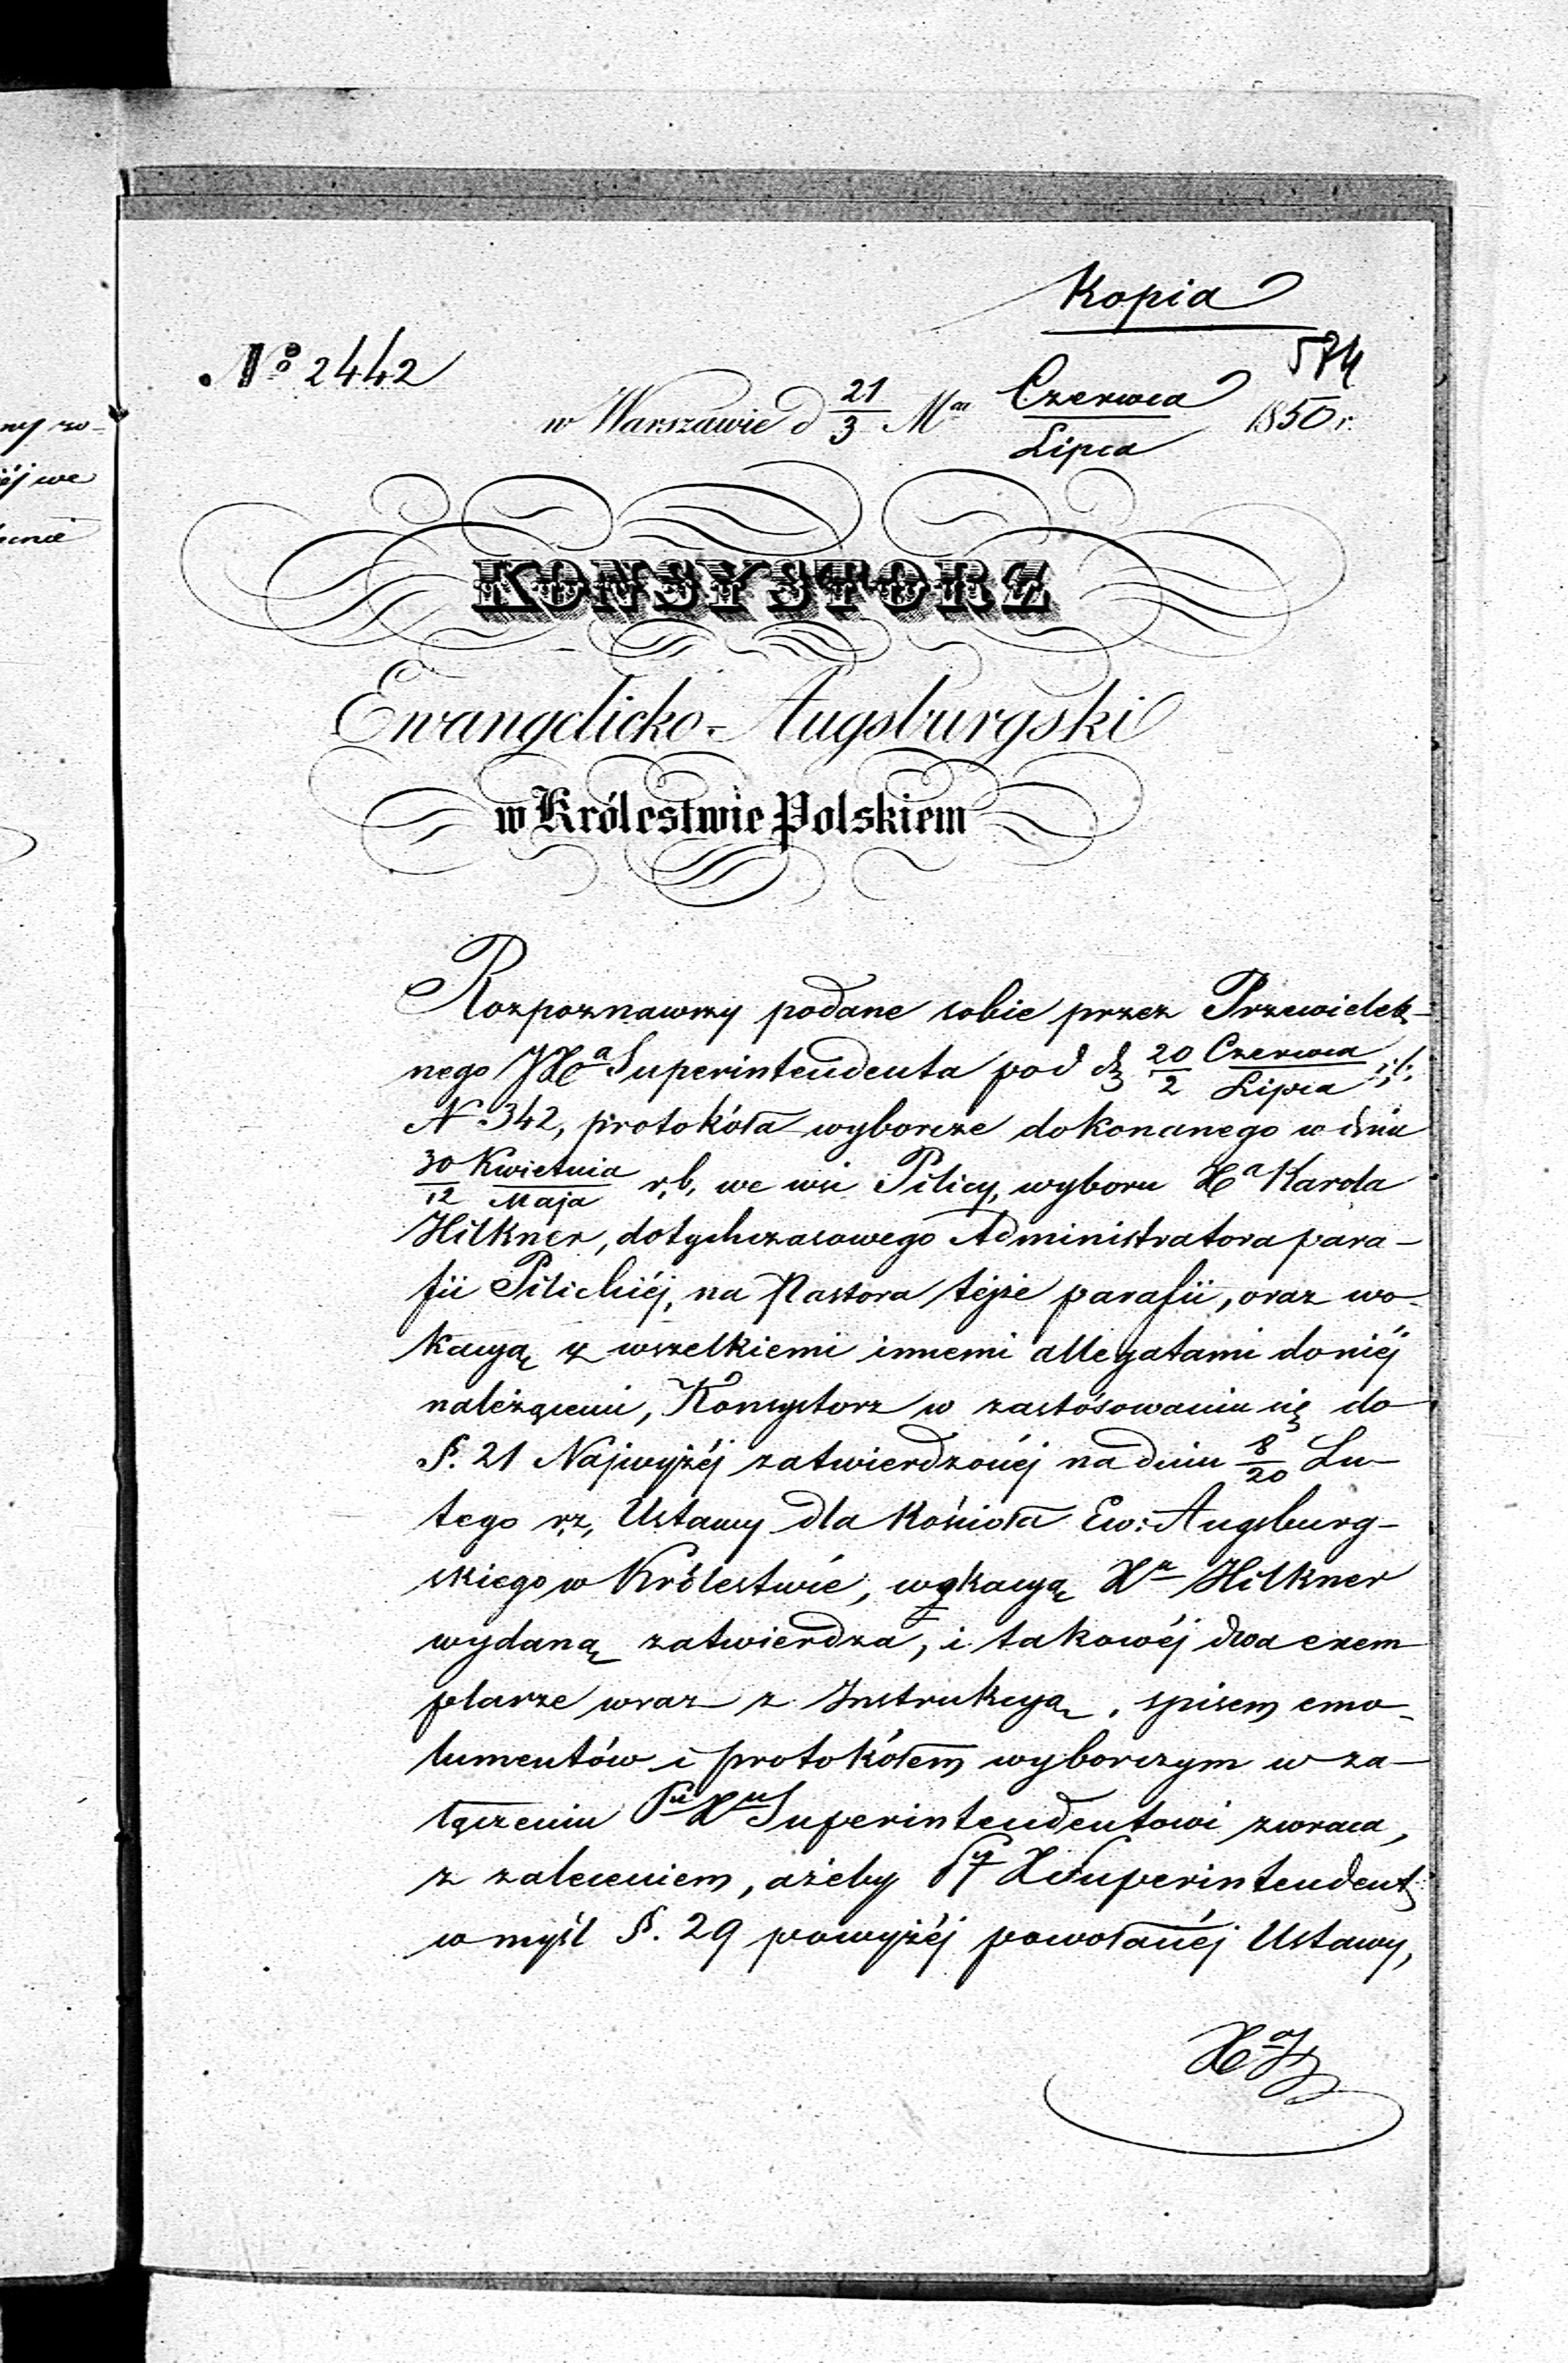 ny ro-
iéj we
Kopia
574
№ 2442
w Warszawie d 21/3 Mca Czerwca/Lipca 1850 r.
KONSYSTORZ
Ewangelicko-Augsburgski
w Królestwie Polskiem
Rozpoznawszy podane sobie przez Przewieleb-
nego JXa Superintendenta pod d 20/2 Czerwca/Lipca
N 342, protokóła wyborcze dokonanego w dniu
30/12 Kwietnia/Maja r. b, we wsi Pilicy, wyboru Xa Karola
Hilkner, dotychczasowego Administratora para-
fii Pilickiéj, na Pastora téjże parafii, oraz wo-
kacyą z wszelkiemi innemi allegatami do niéj
należącemi, Konsystorz w zastósowaniu się do
§. 21 Najwyżéj zatwierdzonéj na dniu 8/20 Lu-
tego r. z, Ustawy dla Kościoła Ew: Augsburg-
skiego w Królestwie, wokacyą Xa Hilkner
wydaną zatwierdza, i takowéj dwa exem-
plarze wraz z Instrukcyą, spisem emo-
lumentów i protokółem wyborczym w za-
łączeniu Xu Superintendentowi zwraca,
z zaleceniem, ażeby X Superintendent
w myśl §. 29 powyżéj powołanéj Ustawy,